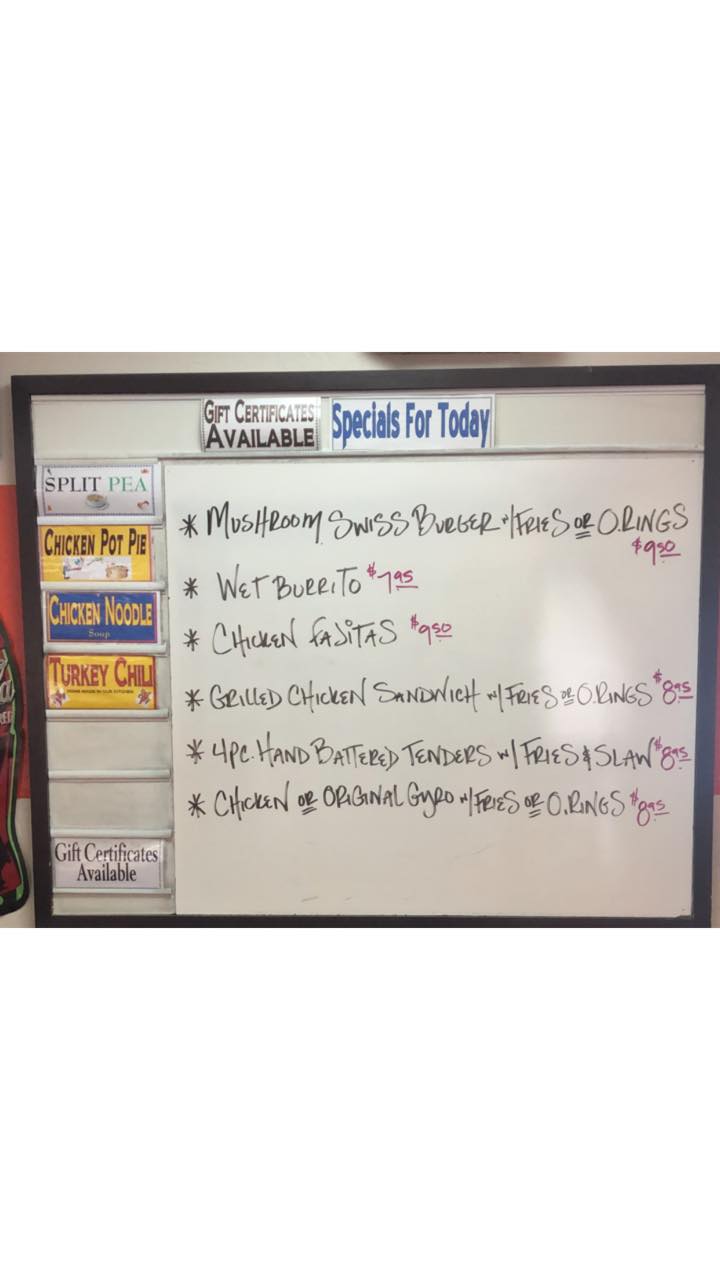 GIFT CERTIFICATES
AVAILABLE
Specials For Today
SPLIT PEA
CHICKEN POT PIE
CHICKEN NOODLE
Soup
TURKEY CHILI
Gift Certificates
Available
* MUSHROOM SWISS BURGER w/FRIES OR O.RINGS
$9.50
* WET BURRITO $7.95
* CHICKEN FAJITAS $9.50
* GRILLED CHICKEN SANDWICH w/FRIES OR O.RINGS $8.95
* 4PC. HAND BATTERED TENDERS w/ FRIES & SLAW $8.95
* CHICKEN OR ORIGINAL GYRO w/FRIES OR O.RINGS $8.95